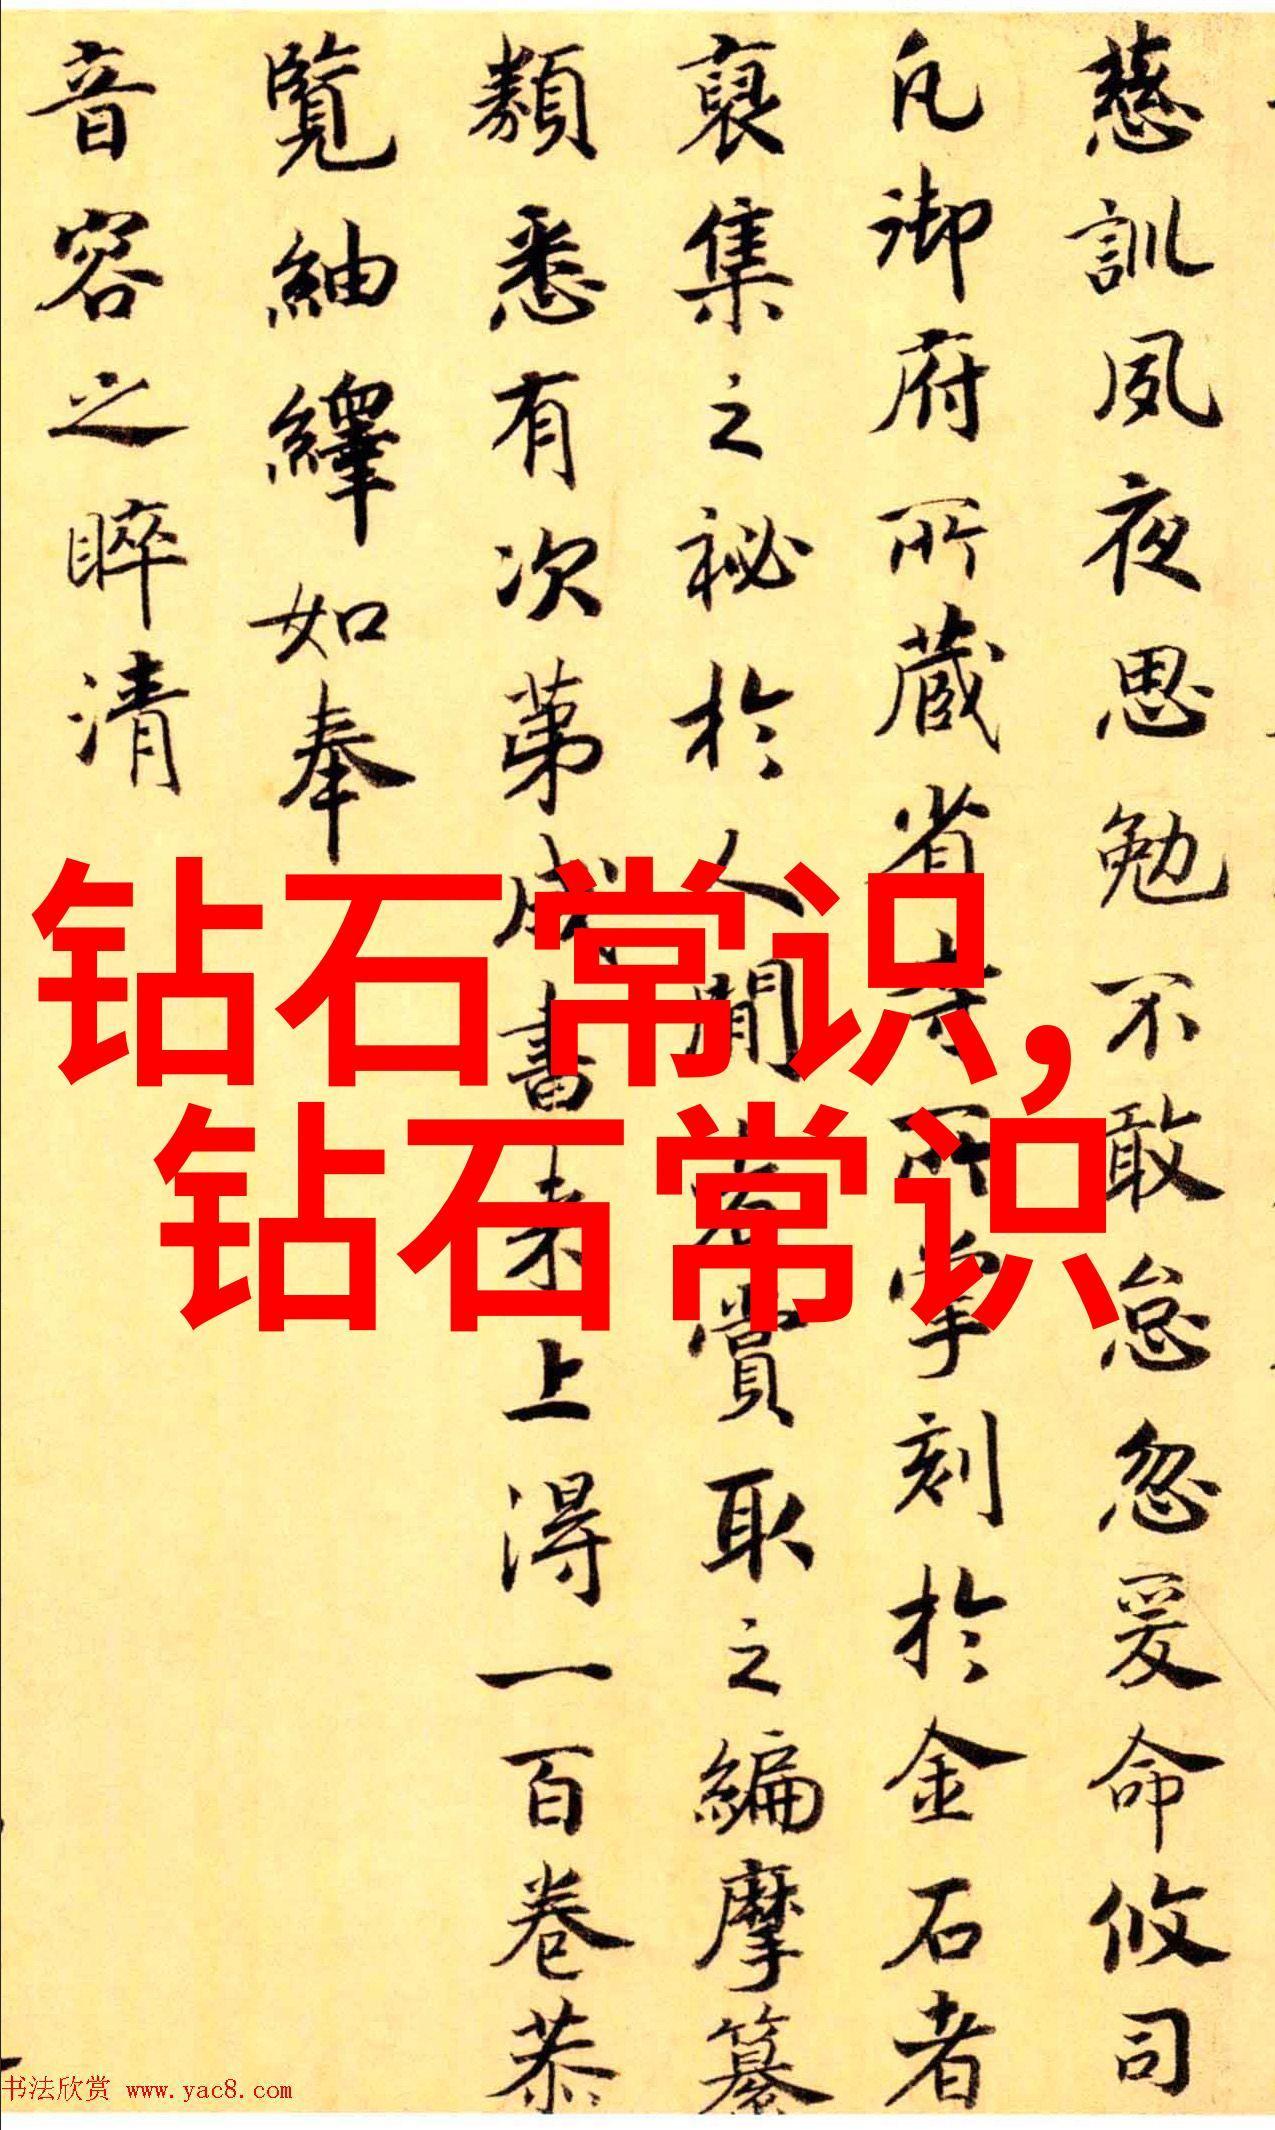 慈訓夙夜思勉不敢怠忽爰命攸司
凡御府所藏省寺所掌刻於金石者
裒集之秘於人間者賞取之編摩纂
類悉有次第成書來上得一百卷恭
覽紬繹如奉
音容之睟清
钻石常识,
钻石常识
书法欣赏 www.yac8.com